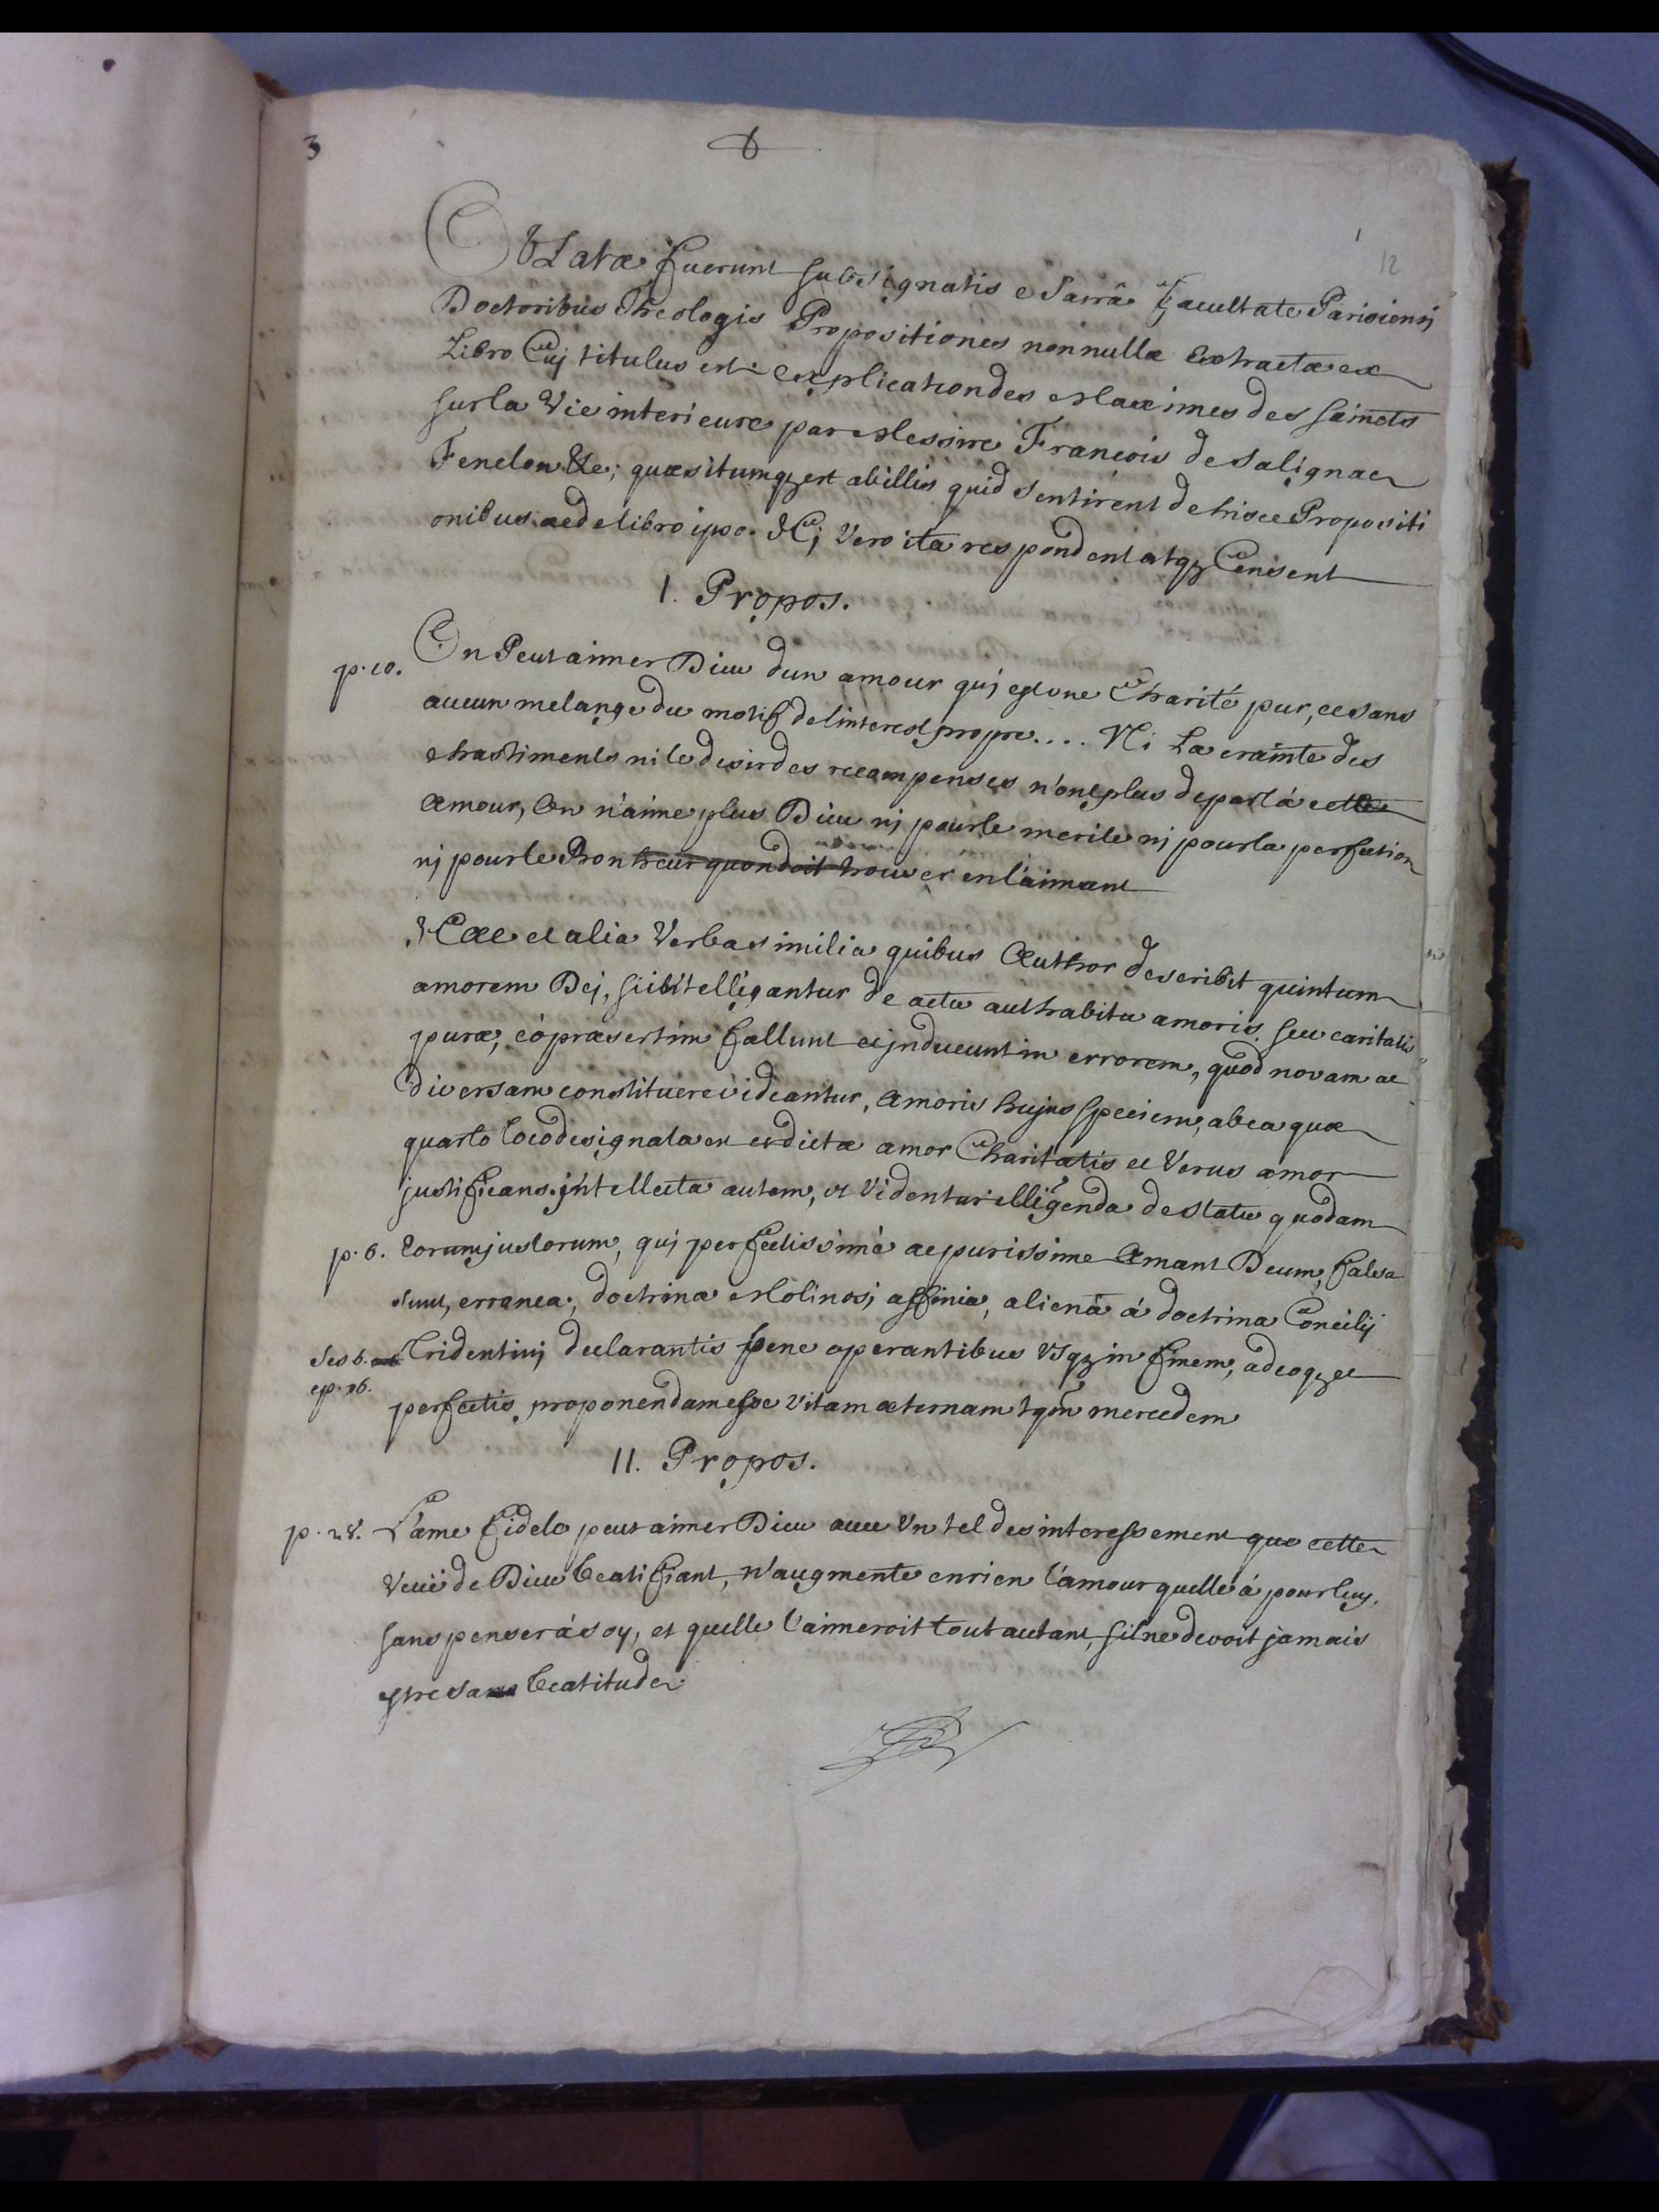 3
1
12
Oblatæ fuerunt subsignatis e Sacrâ facultate Parisiensj
Doctoribus Theologis Propositiones nonnullæ Extractæ ex
Libro Cuj titulus est Explication des Maximes des saincts
sur la Vie interieure par Messire Francois de Salignac
Fenelon &c; quæsitumqz est ab illis quid sentirent de hisce Propositi
onibus ac de libro ipso. Hj Vero ita respondent atqz Censent
I. Propos.
p. 10. On Peut aimer Dieu dun amour quj est une Charité pur, et sans
aucun melange du motif de linterest propre.... Ni La crainte des
chastiments ni le desir des recompenses n'ont plus de part á cette
Amour, On n'aime plus Dieu nj pour le merite nj pour la perfection
nj pour le Bonheur quon doit trouver en l'aimant
Hæc et alia Verba similia quibus Author describit quintum
amorem Dej, si intelligantur de actu aut habitu amoris seu caritatis
puræ, eò præsertim fallunt et jnducunt in errorem, quod novam ac
diversam constituere videantur, Amoris hujus speciem, ab ea quæ
quarto loco designata est et dicta amor Charitatis et Verus amor
justificans. jntellecta autem, ut Videntur intelligenda de statu quodam
p. 6. Eorum justorum, quj perfectissimè ac purissime Amant Deum, falsa
sunt, erronea, doctrinæ Molinosj affinia, aliena á doctrina Concilij
Ses 6. Tridentinj declarantis bene operantibus Usqz in finem, adeoqz et
cp. 16. perfectis proponendam esse Vitam æternam tqm̃ mercedem
II. Propos.
p. 28. L'ame fidele peut aimer Dieu avec Un tel desinteressement que cette
Veüe de Dieu beatifiant, n'augmente en rien l'amour quelle á pour luy,
sans penser á soy, et quelle l'aimeroit tout autant, sil ne devoit jamais
estre sa beatitude